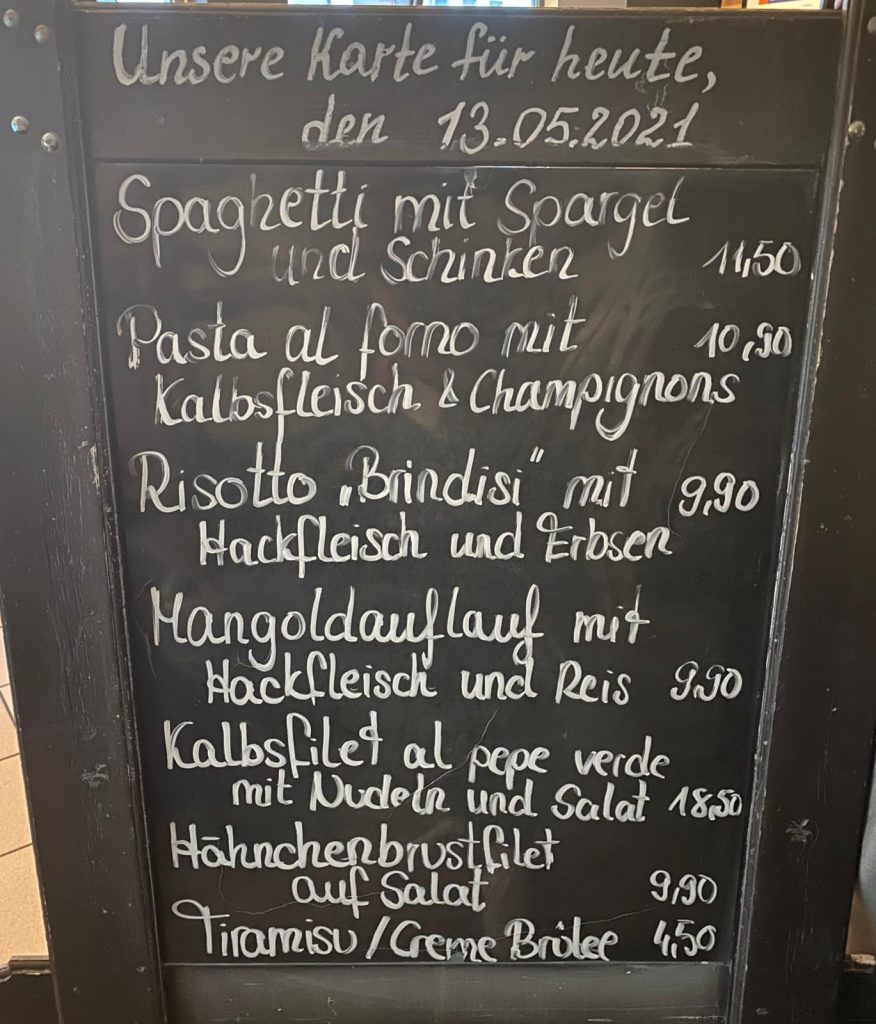 Unsere Karte für heute,
den 13.05.2021
Spaghetti mit Spargel
und Schinken 11,50
Pasta al forno mit 10,90
Kalbsfleisch & Champignons
Risotto „Brindisi" mit 9,90
Hackfleisch und Erbsen
Mangoldauflauf mit
Hackfleisch und Reis 9,90
Kalbsfilet al pepe verde
mit Nudeln und Salat 18,50
Hähnchenbrustfilet
auf Salat 9,90
Tiramisu/Creme Brôlee 4,50